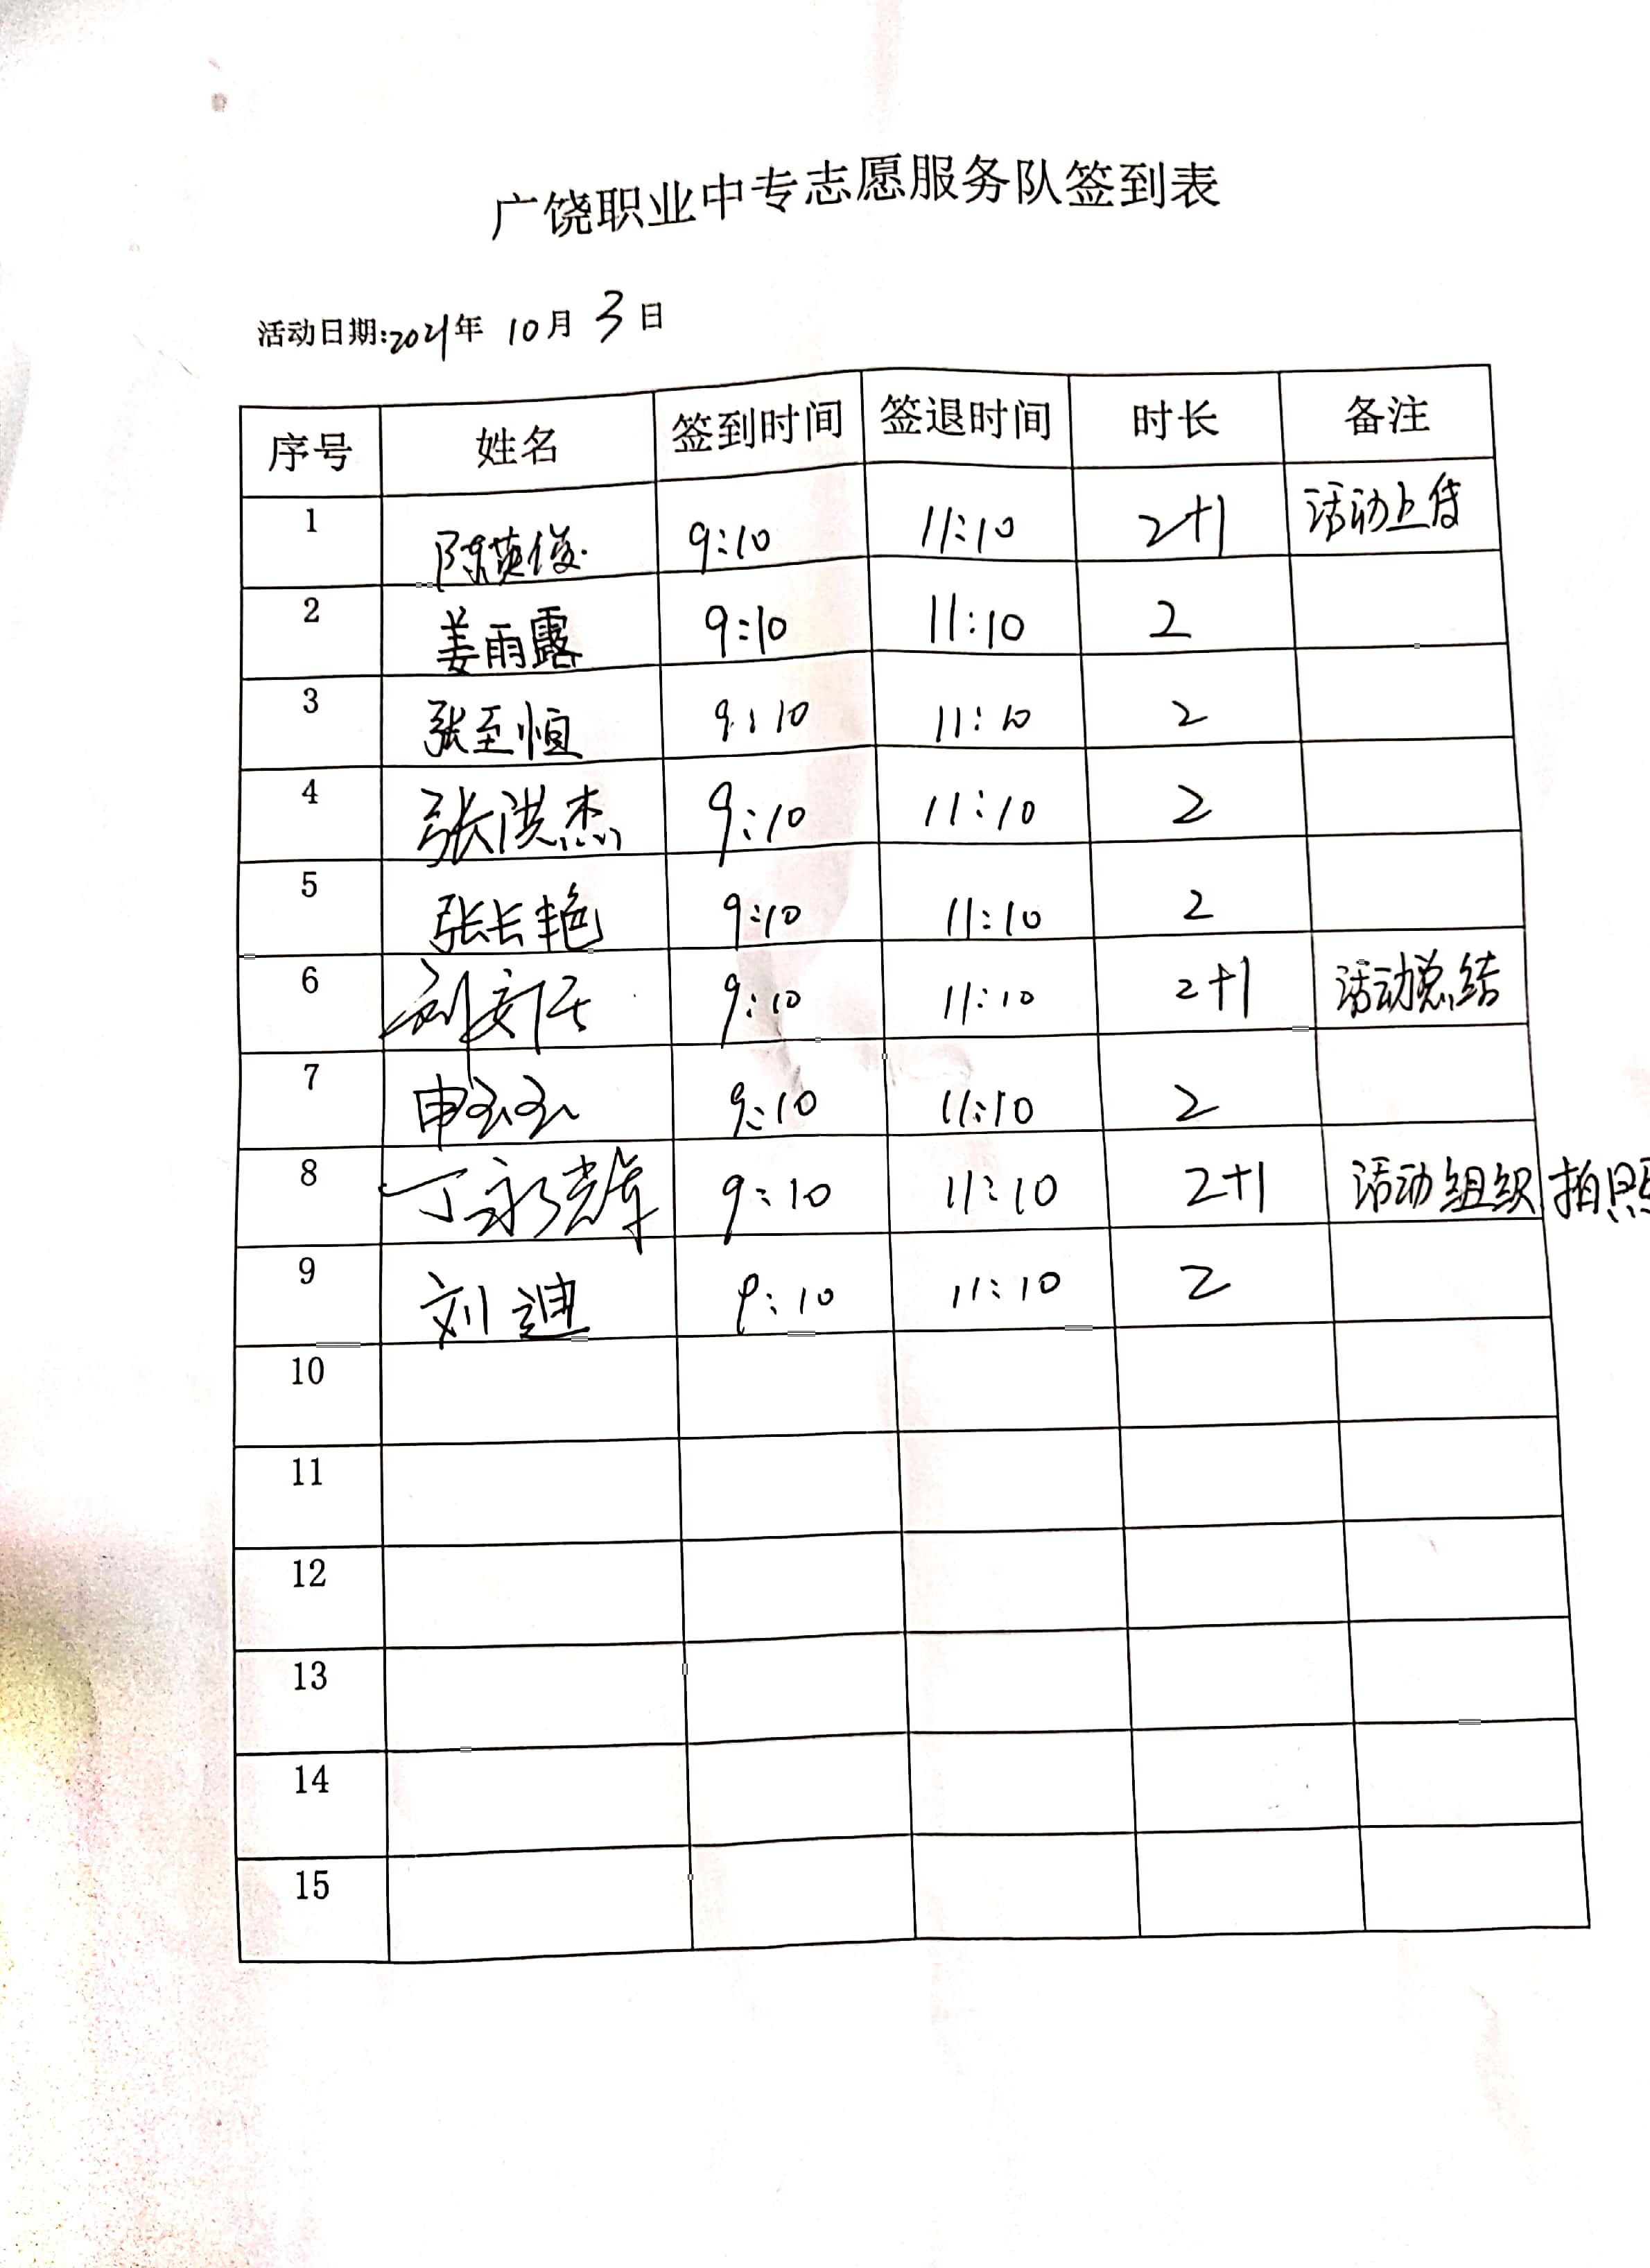 广饶职业中专志愿服务队签到表
活动日期:2021年 10月 3日
序号 姓名 签到时间 签退时间 时长 备注
1 陈英俊 9:10 11:10 2+1 活动上传
2 姜雨露 9:10 11:10 2
3 张至恒 9:10 11:10 2
4 张洪杰 9:10 11:10 2
5 张长艳 9:10 11:10 2
6 9:10 11:10 2+1 活动总结
7 9:10 11:10 2
8 丁永辉 9:10 11:10 2+1 活动组织 拍照
9 刘迪 9:10 11:10 2
10
11
12
13
14
15